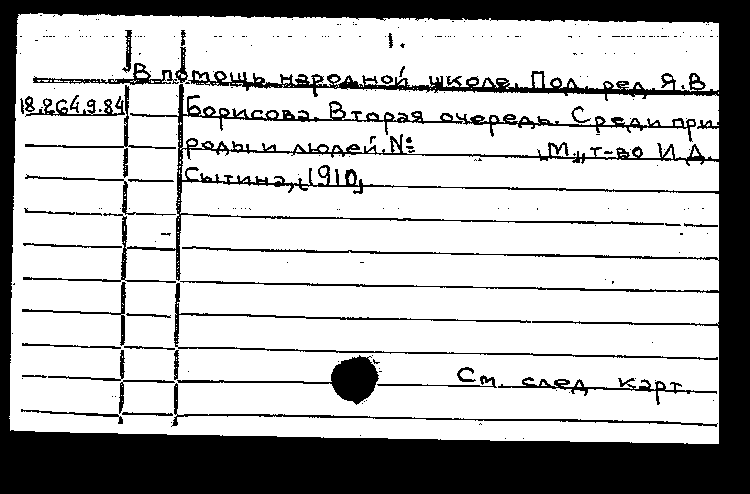 1.
В помощь народной школе. Под ред. Я.В.
18.264.9.84 Борисова. Вторая очередь. Среди при-
роды и людей. № [М.], т-во И.Д.
Сытина, [1910]
См. след карт.